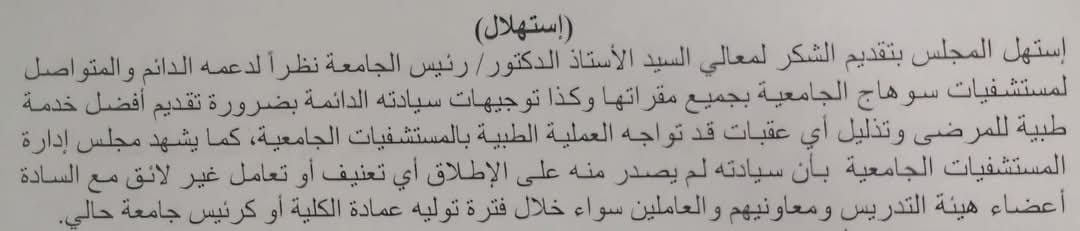 (إستهلال)
إستهل المجلس بتقديم الشكر لمعالي السيد الأستاذ الدكتور/ رئيس الجامعة نظراً لدعمه الدائم والمتواصل
لمستشفيات سوهاج الجامعية بجميع مقراتها وكذا توجيهات سيادته الدائمة بضرورة تقديم أفضل خدمة
طبية للمرضى وتذليل أي عقبات قد تواجه العملية الطبية بالمستشفيات الجامعية، كما يشهد مجلس إدارة
المستشفيات الجامعية بأن سيادته لم يصدر منه على الإطلاق أي تعنيف أو تعامل غير لائق مع السادة
أعضاء هيئة التدريس ومعاونيهم والعاملين سواء خلال فترة توليه عمادة الكلية أو كرئيس جامعة حالي.